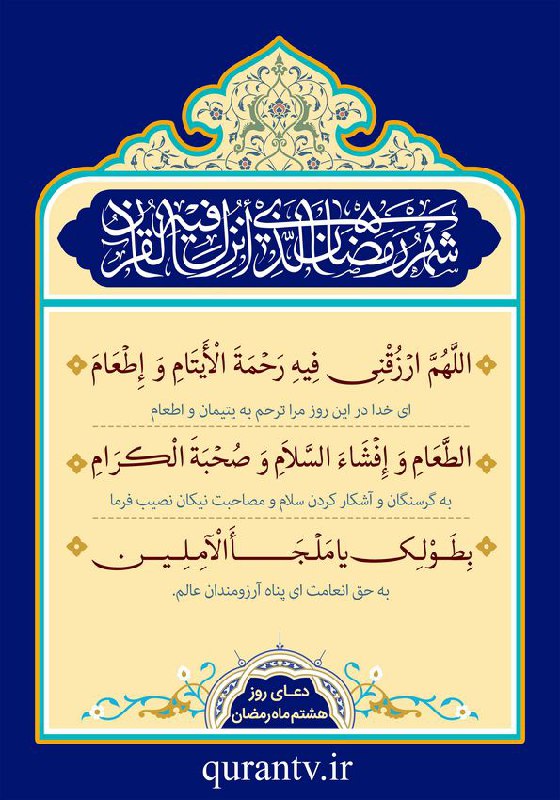 شهر رمضان الذی أنزل فیه القرآن
اللَّهُمَّ ارْزُقْنِی فِیهِ رَحْمَةَ الْأَیتَامِ وَ إِطْعَامَ
ای خدا در این روز مرا ترحم به یتیمان و اطعام
الطَّعَامِ وَ إِفْشَاءَ السَّلاَمِ وَ صُحْبَةَ الْکرَامِ
به گرسنگان و آشکار کردن سلام و مصاحبت نیکان نصیب فرما
بِطَوْلِک یا مَلْجَأَ الْآمِلِین
به حق انعامت ای پناه آرزومندان عالم.
دعای روز
هشتم ماه رمضان
qurantv.ir